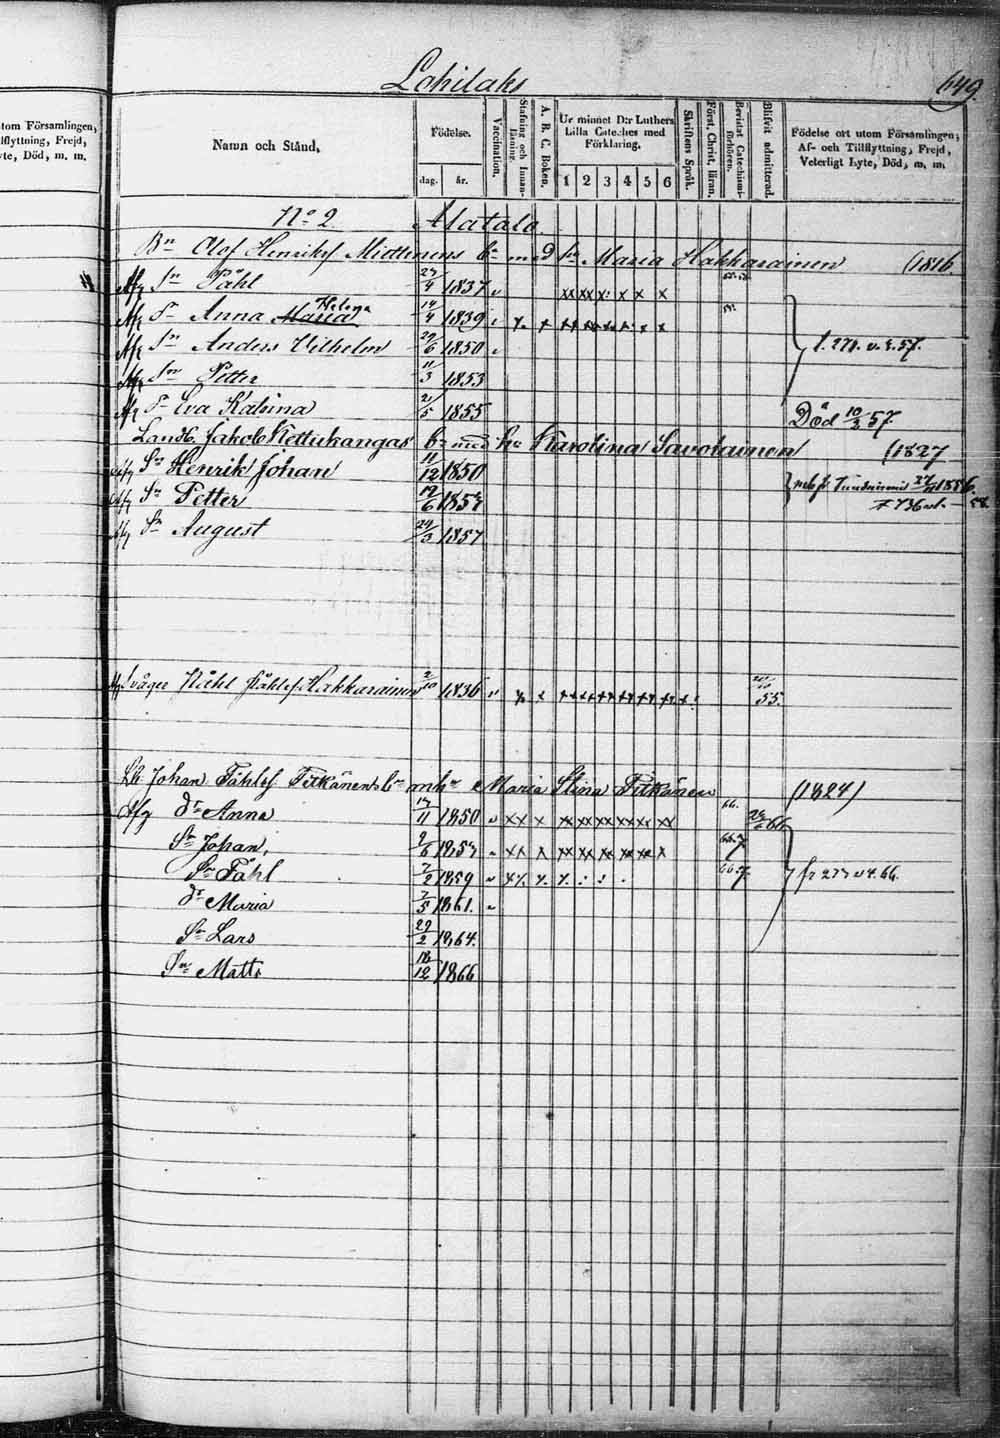 Lohilaks
649.
utom Församlingen,
Tillflyttning, Frejd,
Lyte, Död, m. m.
Namn och Stånd,
Födelse.
dag. år.
Vaccination.
Stafning och Innan-läsning.
A. B. C. Boken.
Ur minnet D:r Luthers Lilla Cateches med Förklaring.
1 2 3 4 5 6
Skriftens Språk.
Först. Christ. läran.
Bevistat Catechismi-förhören.
Blifvit admitterad.
Födelse ort utom Församlingen, Af- och Tillflyttning, Frejd, Veterligt Lyte, Död, m. m.
No 2 Matalo.
Bn Olof Henriksf Miettinens br med hr Maria Hakkarainen (1816.
Afg Sn Påhl 27/4 1837
Afg Dr Anna Maria Helena 14/4 1839
Afg Sn Anders Vilhelm 29/6 1850 f. 271. v. 3. 57.
Afg Sn Petter 11/3 1853
Afg Dr Eva Katrina 2/5 1855 Död 10/3 57.
Landb. Jakob Kettukangas' br med hr Karolina Savolainen (1827
Afg Sn Henrik Johan 11/12 1850
Afg Sn Petter 19/6 1853
Afg Sn August 24/3 1857
Afg Svåger Nikl Påhlsf. Hakkarainen 2/10 1836 55.
Lb. Johan Påhlsf Pitkänens br m hr Maria Stina Pitkänen (1824)
Afg dr Anna 17/11 1850 66.
Sn Johan, 2/6 1853
Sn Påhl 7/2 1859 fr 277 v 4. 66.
dr Maria 7/5 1861.
Sn Lars 29/2 1864.
Sn Matts 18/12 1866